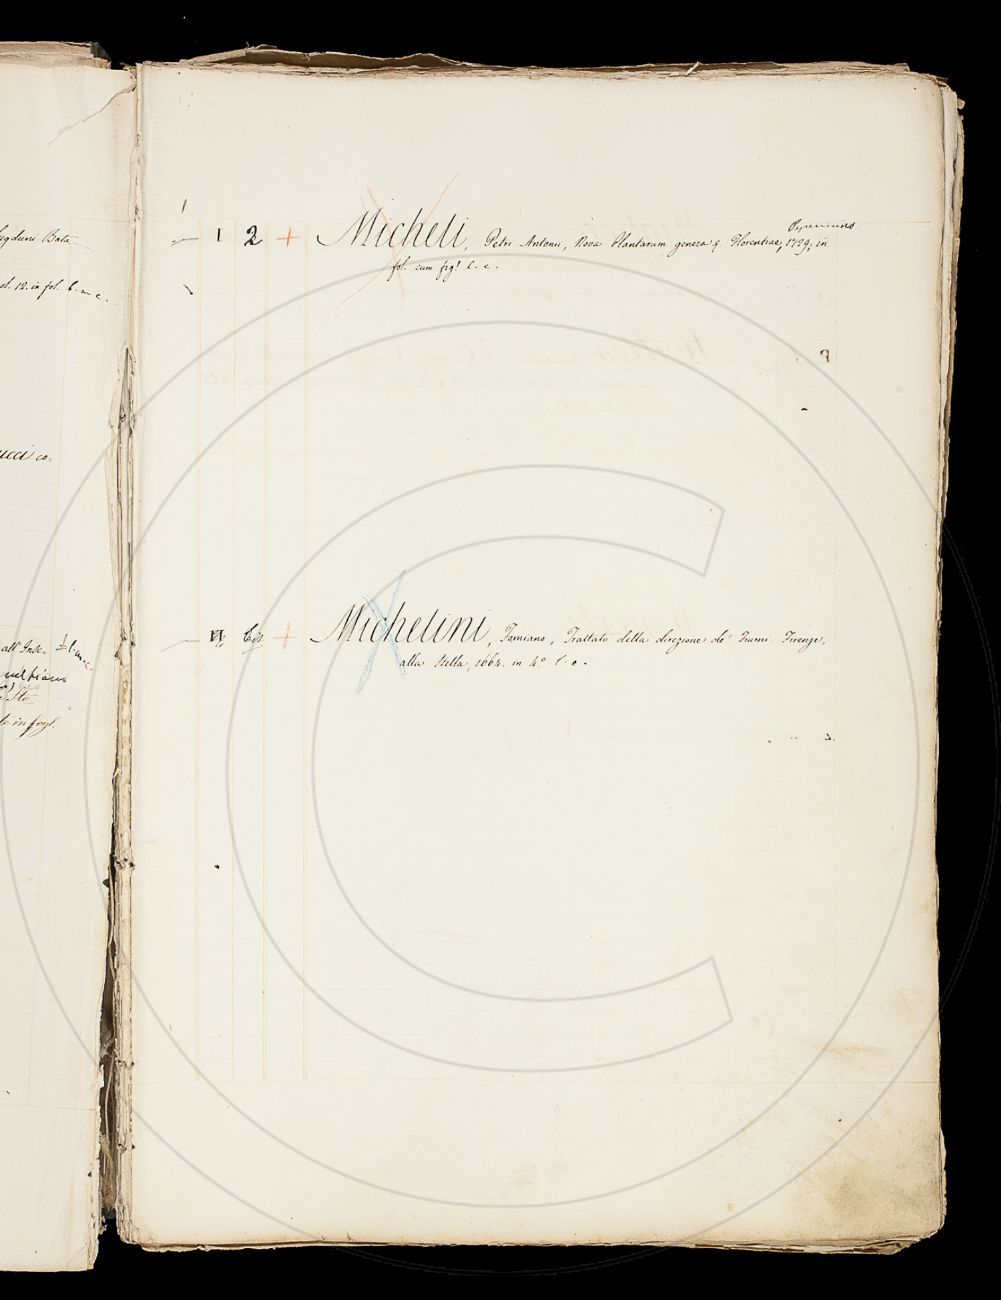 Bata
ol. 12. in fol. l. m. c.
ucci co=
all' Inse.
te in fogl.
Paperinus
1 2 + Micheli, Petri Antonii, Nova Plantarum genera &. Florentiae, 1729, in
fol. cum fig! l. c.
+ Michelini, Famiano, Trattato della direzione de' Fiumi. Firenze,
alla Stella, 1664. in 4.º l. c.